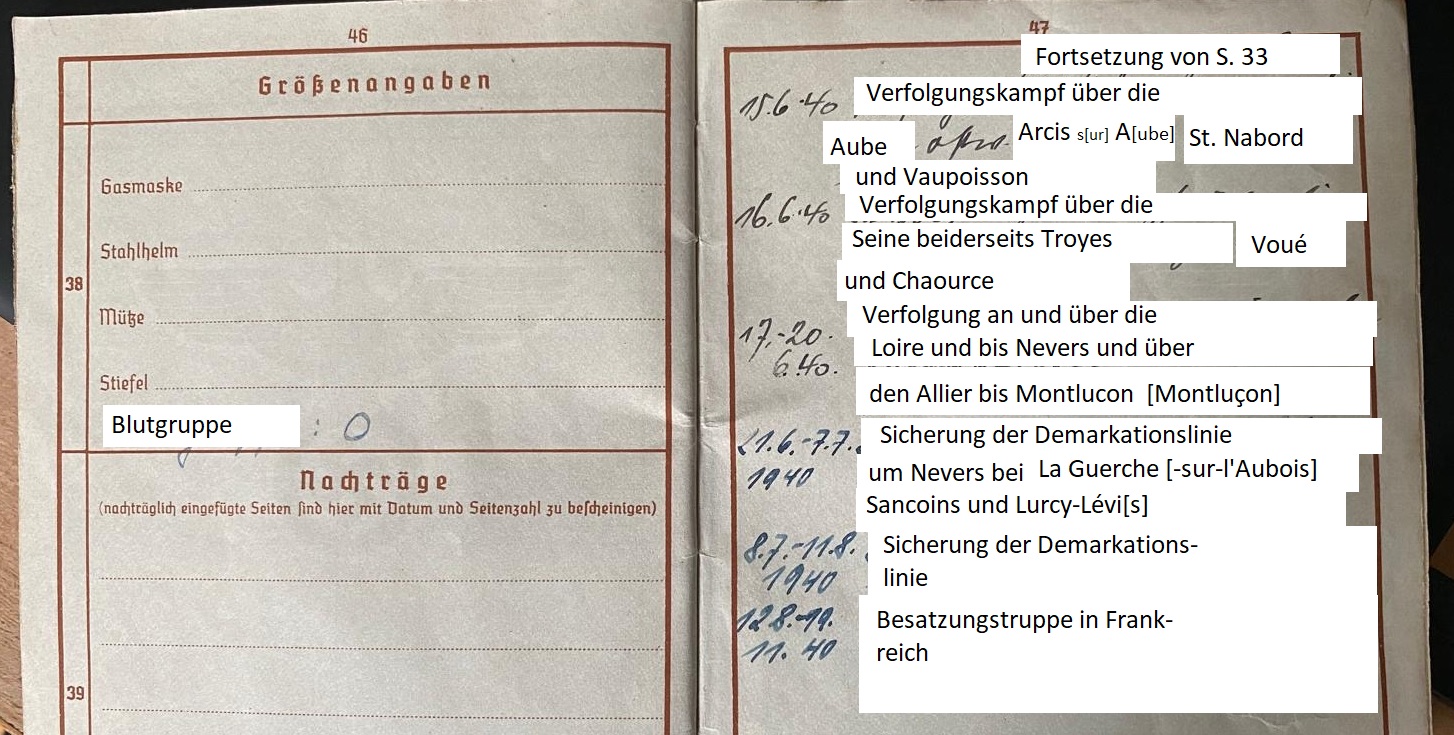 46
Größenangaben
Gasmaske
Stahlhelm
38
Mütze
Stiefel
Blutgruppe : 0
Nachträge
(nachträglich eingefügte Seiten sind hier mit Datum und Seitenzahl zu bescheinigen)
39
47
Fortsetzung von S. 33
15.6.40 Verfolgungskampf über die
Aube Arcis s[ur] A[ube] St. Nabord
und Vaupoisson
16.6.40 Verfolgungskampf über die
Seine beiderseits Troyes Voué
und Chaource
17.-20. Verfolgung an und über die
6.40. Loire und bis Nevers und über
den Allier bis Montlucon [Montluçon]
21.6.-7.7. Sicherung der Demarkationslinie
1940 um Nevers bei La Guerche [-sur-l'Aubois]
Sancoins und Lurcy-Lévi[s]
8.7.-11.8. Sicherung der Demarkations-
1940 linie
12.8.-19. Besatzungstruppe in Frank-
11. 40 reich